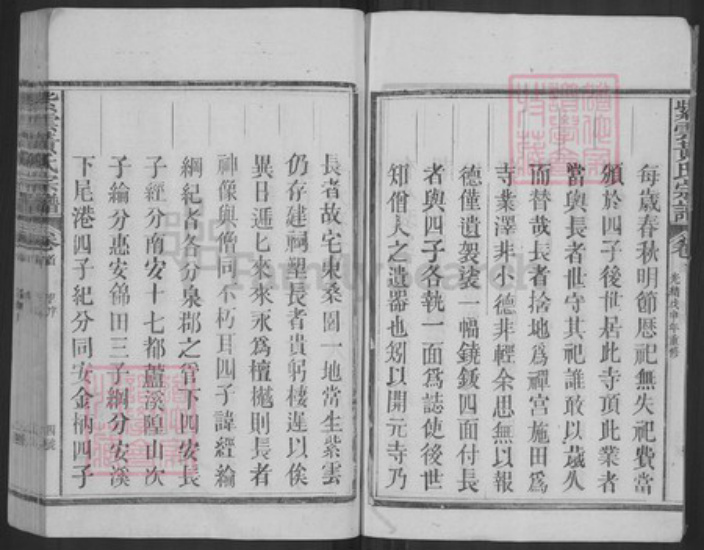 紫雲黃氏宗譜
卷
光緒戊申年重修
每歲春秋明節歷祀無失祀費當
頒於四子後世居此寺頂此業者
當與長者世守其祀誰敢以歲久
而替哉長者捨地爲禪宮施田爲
寺業澤非小德非輕余思無以報
德僅遺袈裟一幅鐃鈸四面付長
者與四子各執一面爲誌使後世
知僧人之遺器也矧以開元寺乃
長者故宅東桑園一地常生紫雲
仍存建祠塑長者貴躬棲遲以俟
異日遞匕來來永爲檀樾則長者
神像與僧同不朽耳四子諱經綸
綱紀者各分泉郡之管下四安長
子經分南安十七都蘆溪隍山次
子綸分惠安錦田三子綱分安溪
下尾港四子紀分同安金柄四子
氏宗譜
卷首
序
四號
FamilySearch